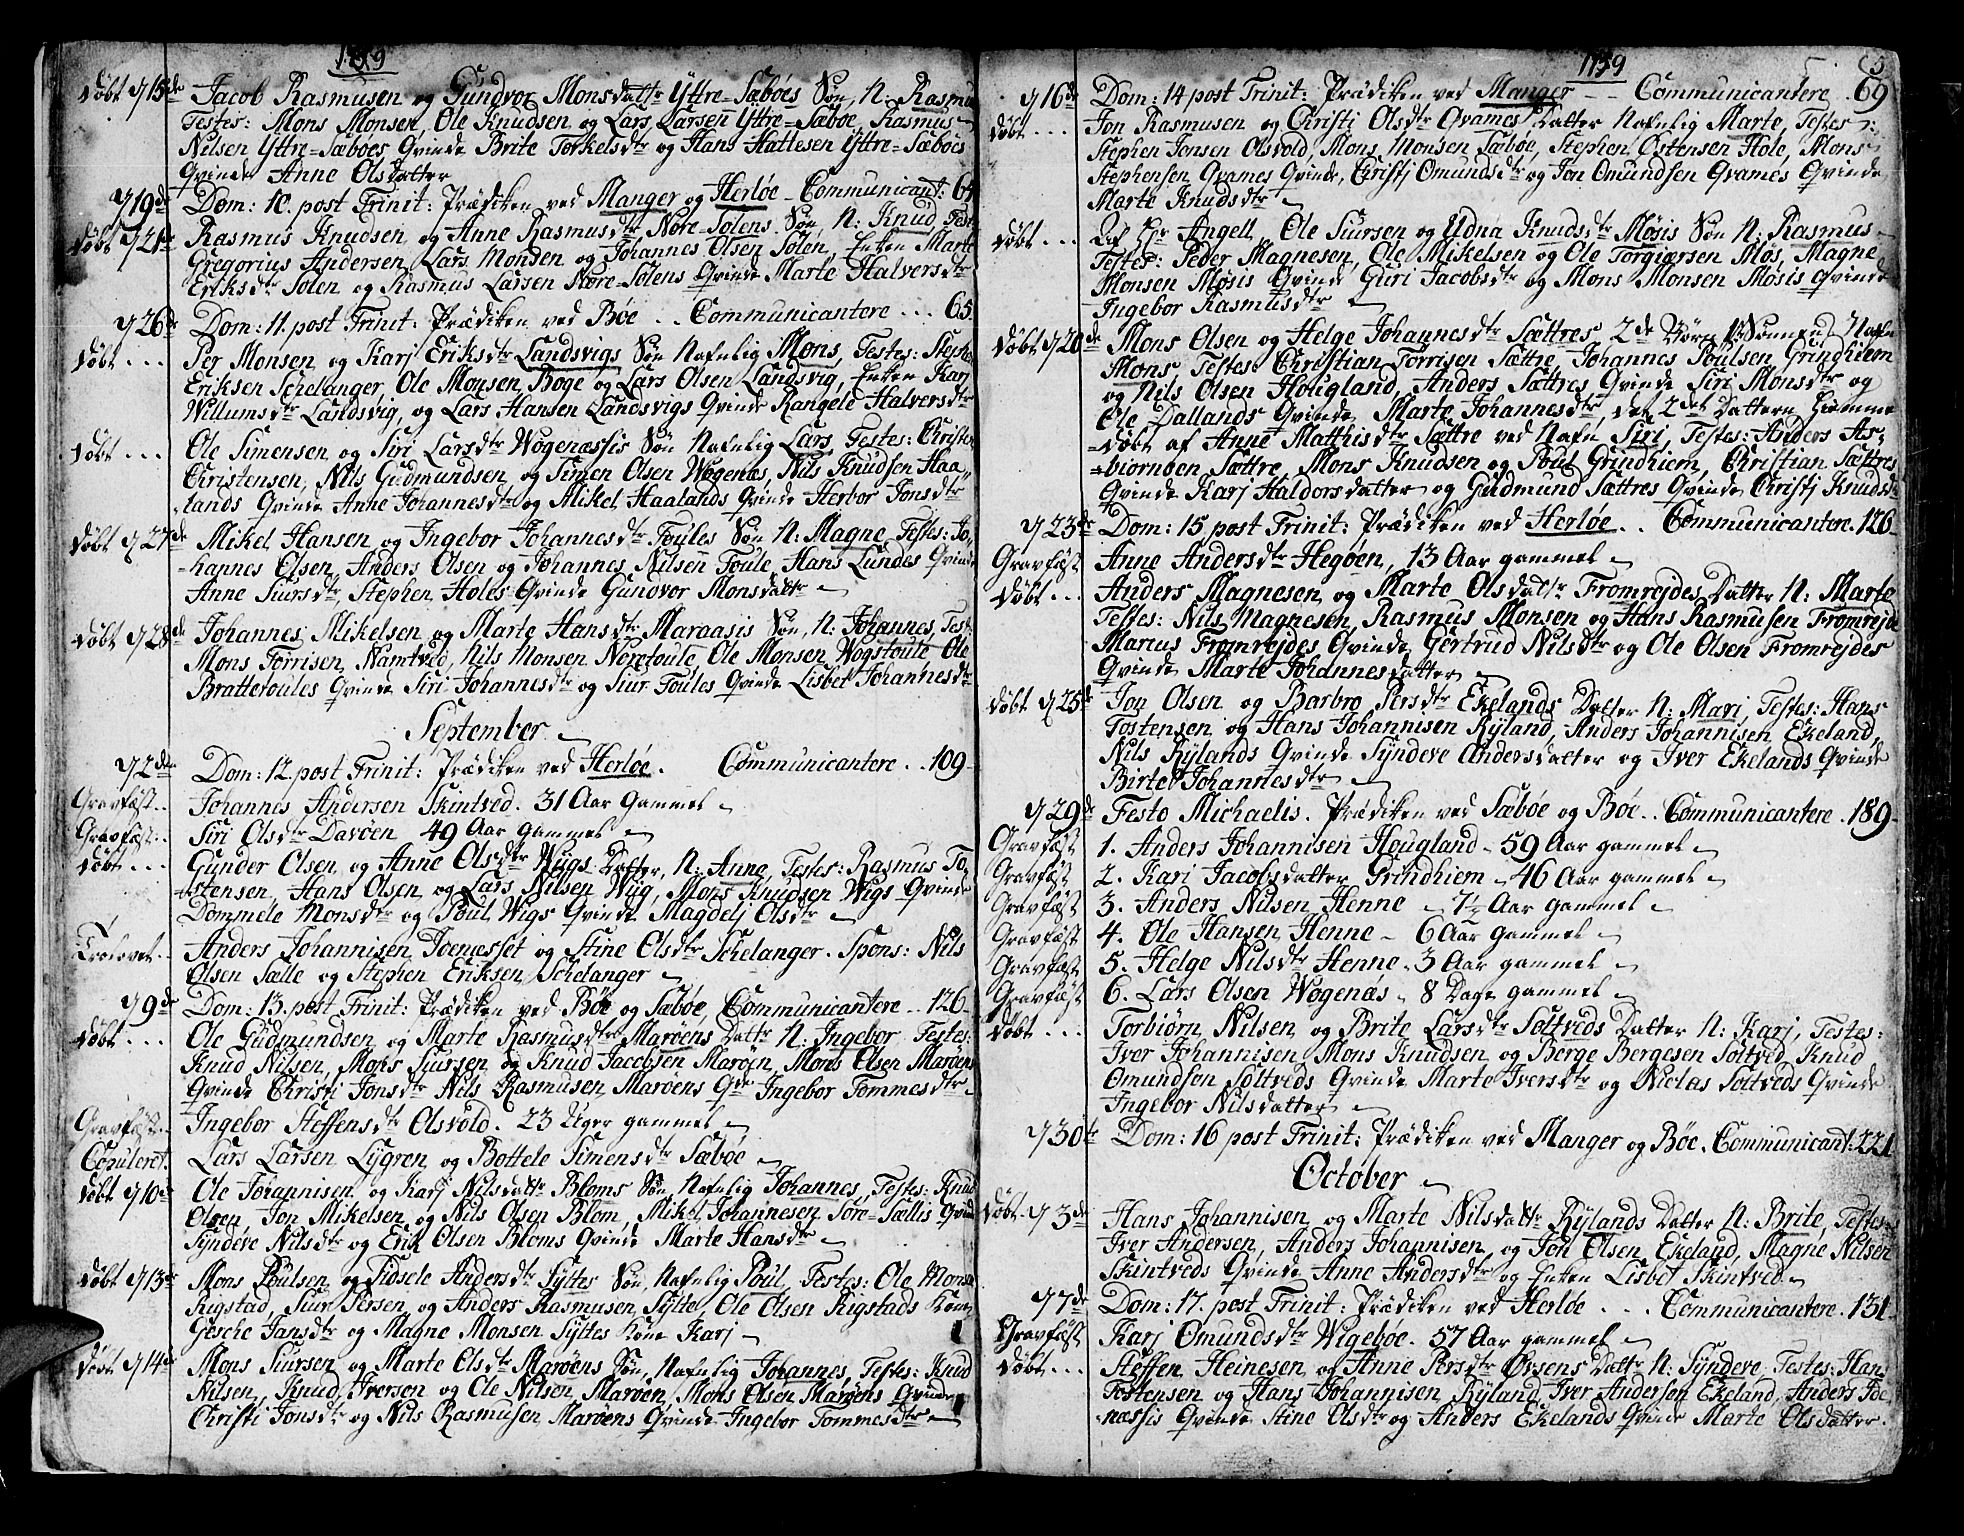 1759
Døbt d 15de Jacob Rasmusen og Gundvor Monsdattr Yttre-Sæbøes Søn, N: Rasmus
Testes: Mons Monsen, Ole Knudsen og Lars Larsen Yttre-Sæbøe, Rasmus
Nilsen Yttre-Sæbøes Qvinde Brite Torkelsdtr og Hans Hattesen Yttre-Sæbøes
Qvinde Anne Olsdatter
d 19de Dom: 10. post Trinit: Prædiken ved Manger og Herløe - Communicant: 64
Døbt d 21de Rasmus Knudsen og Anne Rasmusdtr Nore-Tolens Søn, N: Knud, Test:
Gregorius Andersen, Lars Monsen og Johannes Olsen Tolen, Enken Marte
Eriksdtr Tolen og Rasmus Larsen Nore-Tolens Qvinde Marte Halversdtr
d 26de Dom: 11. post Trinit: Prædiken ved Bøe .. Communicantere ... 65.
Døbt ... Per Monsen og Karj Eriksdtr Landsvigs Søn Nafnlig Mons, Testes: Stephen
Eriksen Schelanger, Ole Monsen Boge og Lars Olsen Landsvig, Enken Karj
Willumsdtr Landsvig, og Lars Hansen Landsvigs Qvinde Rangele Halversdtr
Døbt ... Ole Simensen og Siri Larsdtr Wogenæssis Søn Nafnlig Lars, Testes: Christen
Christensen, Nils Gudmundsen, og Simen Olsen Wogenæs, Nils Knudsen Haa
lands Qvinde Anne Johannesdtr og Mikel Haalands Qvinde Herbor Jonsdtr
Døbt d 27de Mikel Hansen og Ingebor Johannesdtr Toules Søn N: Magne, Testes: Jo-
hannes Olsen, Anders Olsen og Johannes Nilsen Toule, Hans Lundes Qvinde
Anne Siursdtr, Stephen Holes Qvinde Gunovor Monsdattr
Døbt d 28de Johannes Mikelsen og Marte Hansdtr Maraasis Søn, N: Johannes, Test:
Mons Torrisen Namtved, Nils Monsen Neretoule, Ole Monsen Wogstoule, Ole
Bratteroules Qvinde Siri Johannesdtr og Siur Toules Qvinde Lisbet Johannesdtr
September
d 2den Dom: 12. post Trinit: Prædiken ved Herløe. Communicantere .. 109
Gravfæst.. Johannes Andersen Skintved. 31 Aar Gammel
Gravfæst.. Siri Olsdtr Davøen 49 Aar gammel
Døbt ... Gunder Olsen, og Anne Olsdtr Wigs Datter, N: Anne, Testes: Rasmus To-
stensen, Hans Olsen, og Lars Nilsen Wiig, Mons Knudsen Wigs Qvinde
Dommele Monsdtr og Poul Wigs Qvinde Magdelj Olsdtr
Trolovet.. Anders Johannisen Joenæsset og Stine Olsdtr Schelanger. Spons: Nils
Olsen Sælle og Stephen Eriksen Schelanger
d 9de Dom: 13. post Trinit: Prædiken ved Bøe og Sæbøe, Communicantere .. 126
Døbt ... Ole Gudmundsen og Marte Rasmusdtr Marøens Dattr N: Ingebor, Testes:
Knud Nilsen, Mons Siursen, og Knud Jacobsen Marøen, Mons Olsen Marøens
Qvinde Christi Jonsdtr Nils Rasmusen Marøens Qde Ingebor Tommesdtr
Gravfæst.. Ingebor Steffensdtr Olsvold. 23 Uger gammel
Copuleret. Lars Larsen Lygren og Bottele Simensdtr Sæbøe
Døbt d 10de Ole Johannisen og Karj Nilsdattr Bloms Søn, Nafnlig Johannes, Testes: Knud
Olsen, Jon Mikelsen, og Nils Olsen Blom, Mikel Johannesen Søre-Sællis Qvinde
Syndeve Nilsdtr og Erik Olsen Bloms Qvinde Marte Hansdtr
Døbt d 13de Mons Poulsen, og Sidsele Andersdtr Syltes Søn, Nafnlig Poul, Testes: Ole Monsen
Rigstad, Siur Persen, og Anders Rasmusen Sylte, Ole Olsen Rigstads Kone
Gesche Jansdtr og Magne Monsen Syltes Kone Karj
Døbt d 14de Mons Siursen, og Marte Olsdtr Marøens Søn, Nafnlig Johannes, Testes: Knud
Nilsen, Knud Iversen og Ole Nilsen, Marøen, Mons Olsen Marøens Qvinde
Christi Jonsdtr og Nils Rasmusen Marøens Qvinde Ingebor Tommesdtr
1759
d 16de Dom: 14 post Trinit: Prædiken ved Manger - Communicantere . 69
Døbt ... Jon Rasmusen og Christi Olsdtr Qvames Datter Nafnlig Marte, Testes:
Stephen Jonsen Olsvold, Mons Monsen Sæbøe, Stephen Ostensen Hole, Mons
Stephensen Qvames Qvinde, Christj Omundsdtr og Jon Omundsen Qvames Qvinde
Marte Knudsdtr
Døbt ... Af Hr Angell, Ole Siursen og Ydna Knudsdtr Møsis Søn N: Rasmus
Testes: Peder Magnesen, Ole Mikelsen og Ole Torgiærsen Møs, Magne
Monsen Møsis Qvinde Guri Jacobsdtr og Mons Monsen Møsis Qvinde
Ingebor Rasmusdtr
Døbt d 20de Mons Olsen og Helge Johannesdtr Sættres 2de Børn, Sønnens Nafn
Mons Testes: Christian Torrisen Sættre, Johannes Poulsen Grindhiem
og Nils Olsen Hougland, Anders Sættres Qvinde Siri Monsdtr og
Ole Dallands Qvinde Marte Johannesdtr, det 2det Datteren hiemme
døbt af Anne Matthisdtr Sættre ved Nafn Siri, Testes: Anders As-
biornøen Sættre, Mons Knudsen og Poul Grindhiem, Christian Sættres
Qvinde Karj Haldorsdatter og Gudmund Sættres Qvinde Christj Knudsdtr
d 23de Dom: 15 post Trinit: Prædiken ved Herløe .. Communicantere. 126
Gravfæst Anne Andersdtr Hegøen, 13 Aar gammel
Døbt ... Anders Magnesen og Marte Olsdattr Fromrejdes Datter N: Marte
Testes: Nils Magnesen, Rasmus Monsen og Hans Rasmusen Fromrejde
Marius Fromrejdes Qvinde Gertrud Nilsdtr og Ole Olsen Fromrejdes
Qvinde Marte Johannesdatter
Døbt d 25de Jon Olsen og Barbro Persdtr Ekelands Datter N: Mari, Testes: Hans
Tostensen og Hans Johannisen Ryland, Anders Johannisen Ekeland,
Nils Rylands Qvinde Syndeve Andersdatter og Iver Ekelands Qvinde
Birte Johannesdtr
d 29de Festo Michaelis. Prædiken ved Sæbøe og Bøe .. Communicantere . 189
Gravfæst 1. Anders Johannisen Hougland - 59 Aar gammel
Gravfæst 2. Kari Jacobsdatter Grindhiem - 46 Aar gammel
Gravfæst 3. Anders Nilsen Henne - 7½ Aar gammel
Gravfæst 4. Ole Hansen Henne - 6 Aar gammel
Gravfæst 5. Helge Nilsdtr Henne - 3 Aar gammel
Gravfæst 6. Lars Olsen Wogenæs - 8 Dage gammel
Døbt ... Torbiørn Nilsen og Brite Larsdtr Soltveds Datter N: Karj, Testes:
Iver Johannisen, Mons Knudsen og Berge Bergesen Soltved, Knud
Omundsen Soltveds Qvinde Marte Iversdtr og Niclas Soltveds Qvinde
Ingebor Nilsdatter
d 30te Dom: 16 post Trinit: Prædiken ved Manger og Bøe. Communicant: 221
October
Døbt d 3de Hans Johannisen og Marte Nilsdattr Rylands Datter N: Brite, Testes
Iver Andersen, Anders Johannisen, og Jon Olsen Ekeland, Magne Nilsen
Skintveds Qvinde Anne Andersdtr og Enken Lisbet Skintved
d 7de Dom: 17. post Trinit: Prædiken ved Herløe ... Communicantere. 131
Gravfæst Karj Omundsdtr Wigebøe. 57 Aar gammel
Døbt ... Steffen Heinesen og Anne Persdtr Øvsens Dattr N: Syndeve, Testes: Hans
Tostensen og Hans Johannisen Ryland, Iver Andersen Ekeland, Anders Joe
næssis Qvinde Stine Olsdtr og Anders Ekelands Qvinde Marte Olsdatter.